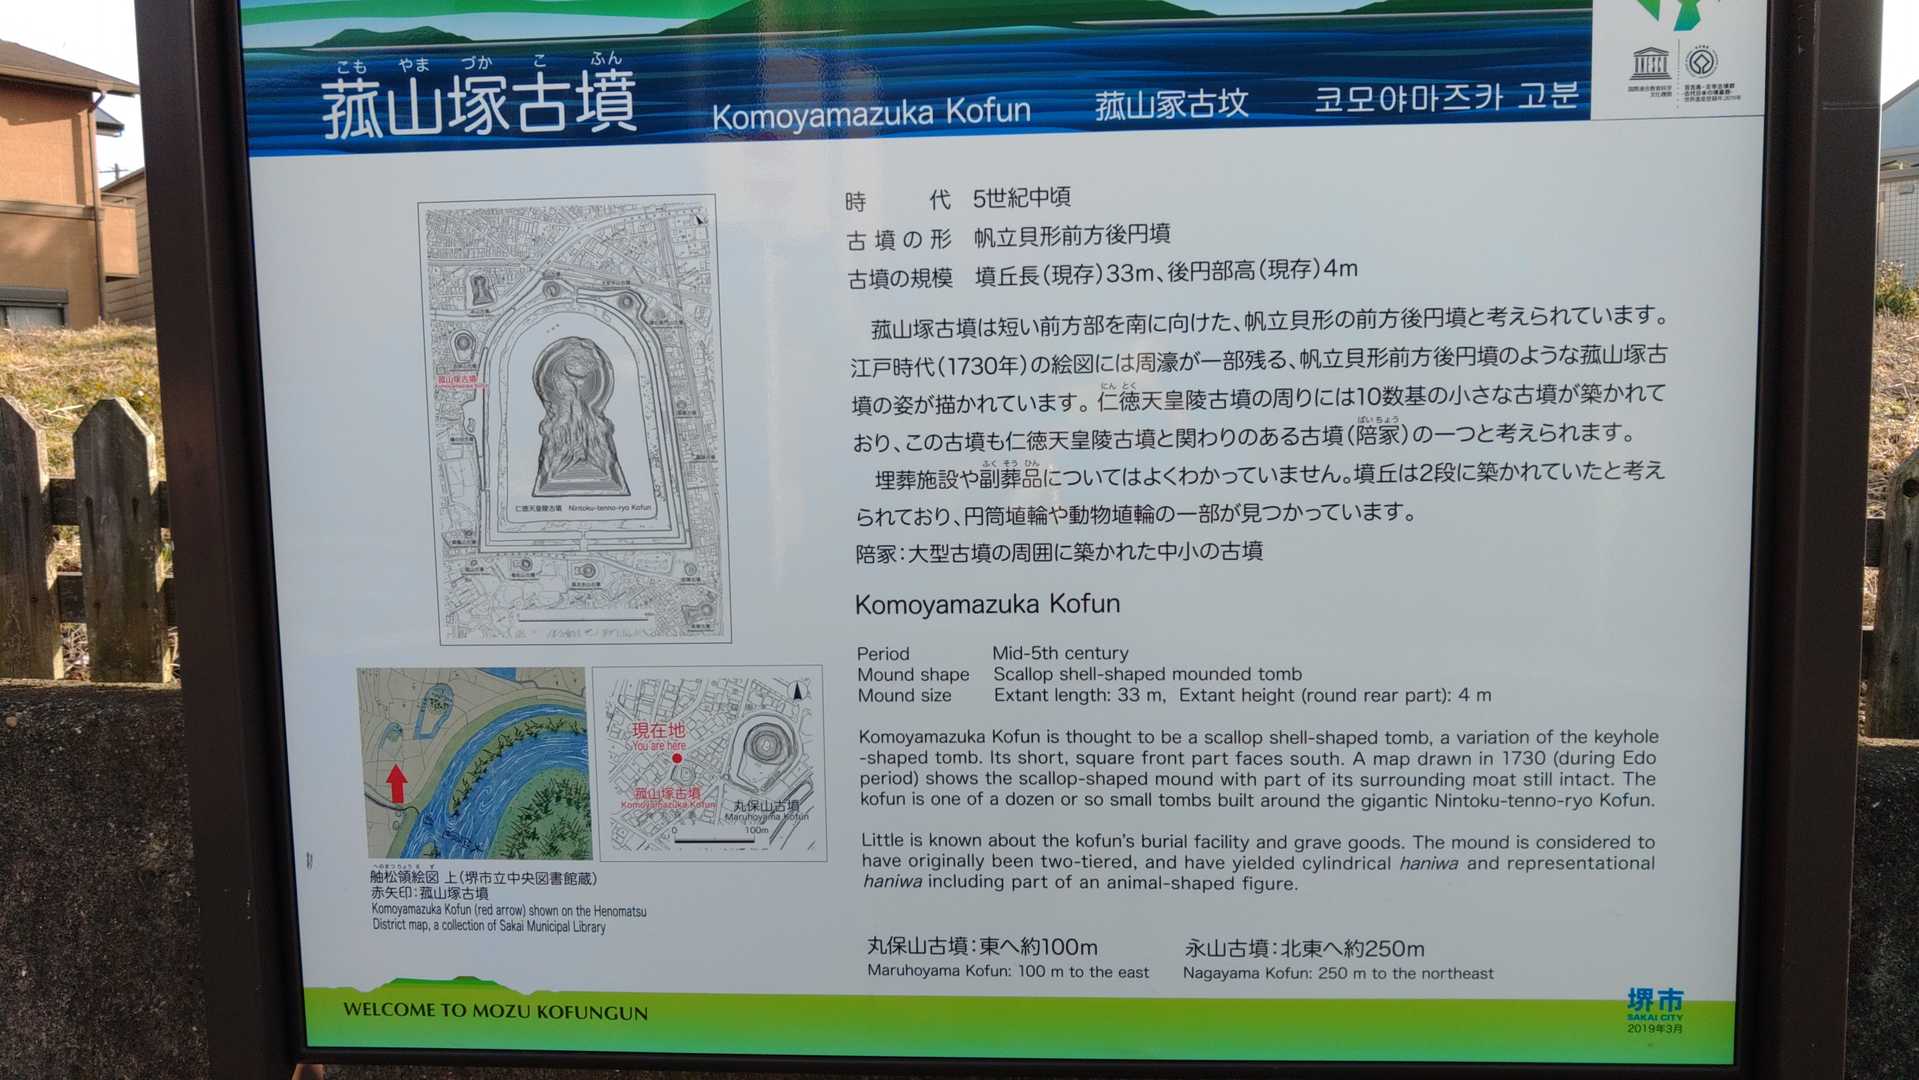 こもやまづかこふん
菰山塚古墳 Komoyamazuka Kofun 菰山冢古坟 코모야마즈카 고분
UNESCO
時代 5世紀中頃
古墳の形 帆立貝形前方後円墳
古墳の規模 墳丘長(現存)33m、後円部高(現存)4m
菰山塚古墳は短い前方部を南に向けた、帆立貝形の前方後円墳と考えられています。
江戸時代(1730年)の絵図には周濠が一部残る、帆立貝形前方後円墳のような菰山塚古
にんとく
墳の姿が描かれています。仁徳天皇陵古墳の周りには10数基の小さな古墳が築かれて
ばいちょう
おり、この古墳も仁徳天皇陵古墳と関わりのある古墳(陪冢)の一つと考えられます。
ふくそうひん
埋葬施設や副葬品についてはよくわかっていません。墳丘は2段に築かれていたと考え
られており、円筒埴輪や動物埴輪の一部が見つかっています。
陪冢:大型古墳の周囲に築かれた中小の古墳
Komoyamazuka Kofun
Period Mid-5th century
Mound shape Scallop shell-shaped mounded tomb
Mound size Extant length: 33 m, Extant height (round rear part): 4 m
Komoyamazuka Kofun is thought to be a scallop shell-shaped tomb, a variation of the keyhole
-shaped tomb. Its short, square front part faces south. A map drawn in 1730 (during Edo
period) shows the scallop-shaped mound with part of its surrounding moat still intact. The
kofun is one of a dozen or so small tombs built around the gigantic Nintoku-tenno-ryo Kofun.
Little is known about the kofun's burial facility and grave goods. The mound is considered to
have originally been two-tiered, and have yielded cylindrical haniwa and representational
haniwa including part of an animal-shaped figure.
丸保山古墳:東へ約100m 永山古墳:北東へ約250m
Maruhoyama Kofun: 100 m to the east Nagayama Kofun: 250 m to the northeast
菰山塚古墳
仁徳天皇陵古墳 Nintoku-tenno-ryo Kofun
現在地
You are here
菰山塚古墳
Komoyamazuka Kofun
丸保山古墳
Maruhoyama Kofun
0 100m
へのまつりょうえず
舳松領絵図 上(堺市立中央図書館蔵)
赤矢印:菰山塚古墳
Komoyamazuka Kofun (red arrow) shown on the Henomatsu
District map, a collection of Sakai Municipal Library
WELCOME TO MOZU KOFUNGUN
堺市
SAKAI CITY
2019年3月